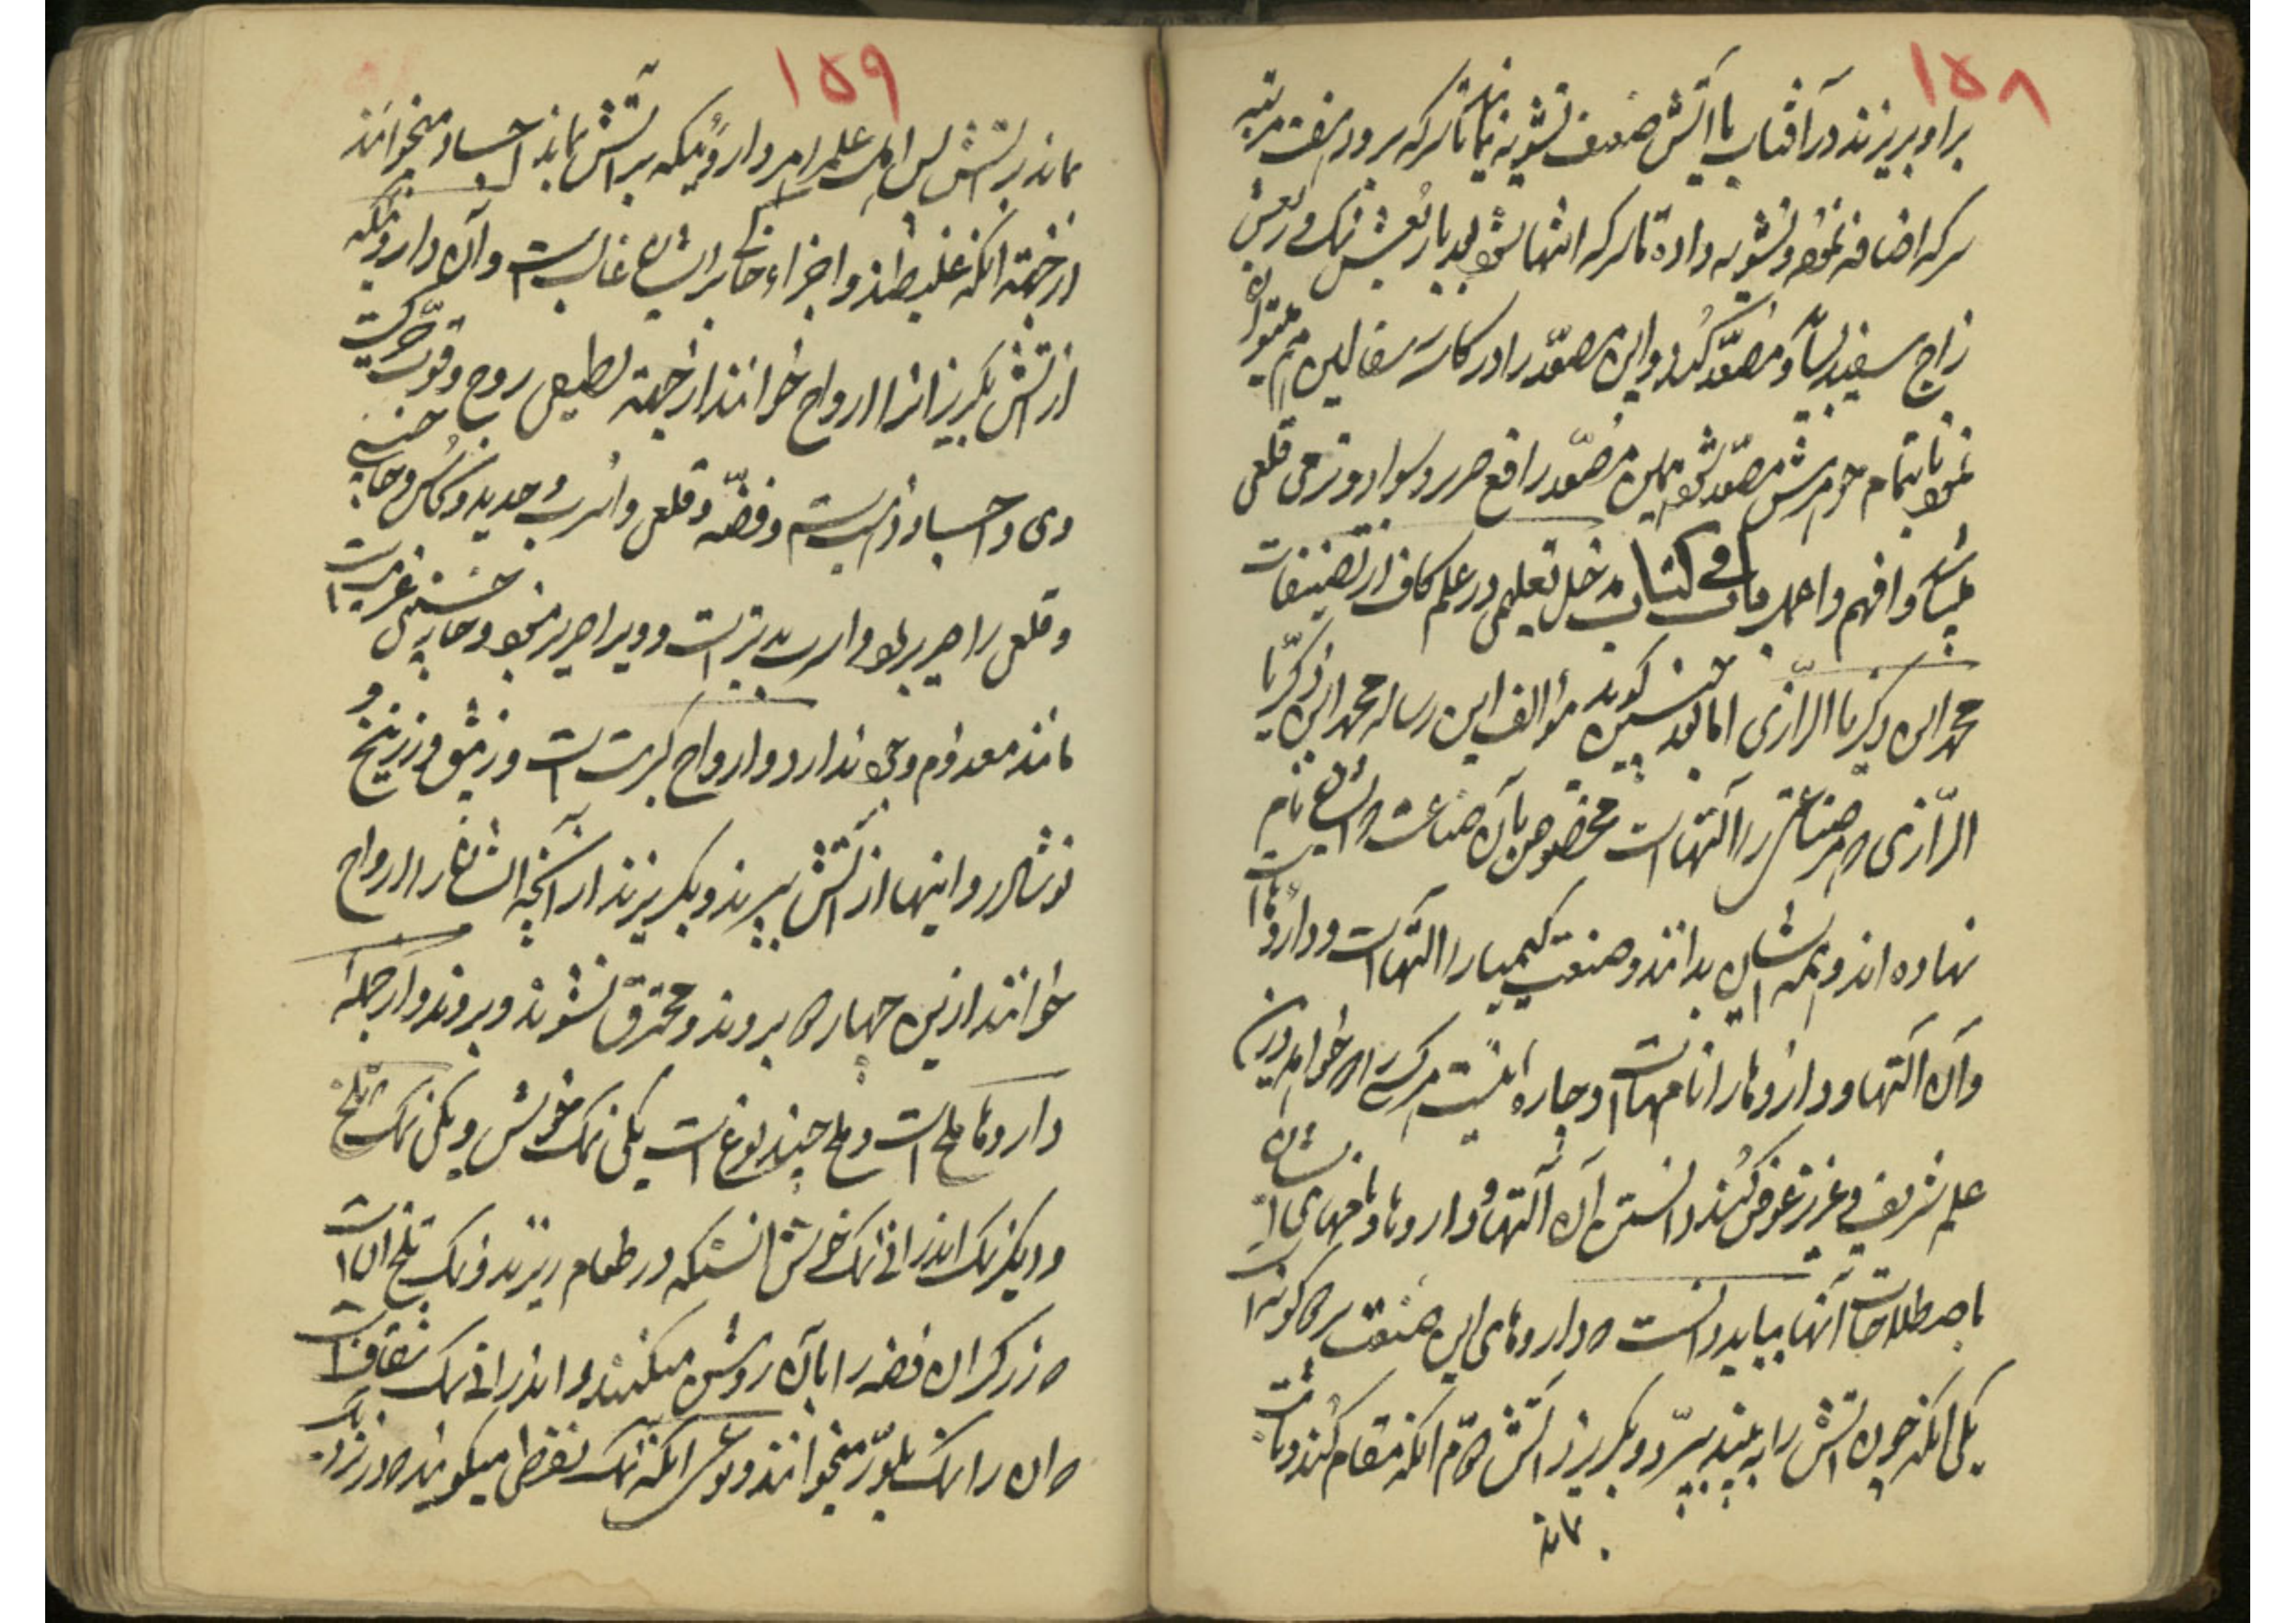 ۱۵۸
براو بریزند در آفتاب یا آتش ضعیف تشویه نمایند تا سرکه برود هفت مرتبه
سرکه اضافه نموده و تشویه داده تا سرکه انتها شود بعد بار بعش نمک و ربعش
زاج سفید بساو و مصعد کند و این مصعد را در کاسه سفالین هم
نموده تا تمام جوهرش مصعد شود همین مصعد رافع صریر و سواد و نرمی قلعی
میباشد وافهم واعمل باب فی کتاب مدخل تعلیمی در علم کاف از تصنیفات
محمد ابن ذکریا الرازی اما بعد چنین کوید مؤالف این رساله محمد ابن ذکریا
الرازی که هر صناعتی را آلتهاست مخصوص بآن صناعت و ایشانرا نام
نهاده اند و همه ایشان بدانند و صنعت کیمیا را التهاست و داروها است
و آن آلتها و داروها را نامهاست و چاره نیست هر کس را که خواهد در این
علم شریف و عزیز غوض کند دانستن آن آلتها و داروها و نامهای ایشان
باصطلاحات آنها بباید دانست که داروهای این صنعت بر دو کونه است
یکی انکه چون اتش را به بیند بپرد و بکریزد از اتش دوم انکه مقام کند و ثابت
بماند
۱۵۹
بماند بر اتش پس اهل علم مر داروئیکه بر اتش بماند اجساد میخوانند
از جهته انکه غلیظند و اجزاء خاکی بر ایشان غالبست و آن داروئیکه
از اتش بکریزد انرا ارواح خوانند از جهته لطیفی روح و قوت حرکت
وی و اجساد ذهبست و فضه و قلعی و اسرب و حدید و نحاس و خارچینی
و قلعی را صریر بود و اسرب بدتر است و ویرا صریر نبود و خارچینی عزیزست
مانند معدوم وجود ندارد و ارواح کبریت است و زیبق و زرنیخ و
نوشادر و اینها از آتش بپرند و بکریزند از آنجه ایشان را ارواح
خوانند ازین چهار دو بپروند و محترق نشوند و بروند و از جمله
داروها ملح است و ملح چند نوع است یکی نمک خوش و یکی نمک تلخ
و دیکر نمک اندرانی نمک خوش انستکه در طعام ریزند و نمک تلخ انست
که زرکران فضه را بآن روشن میکنند و اندرانی نمک شفافست
که ان را نمک بلور میخوانند و نوعی انکه نمک نفطی میکویند که در نزد